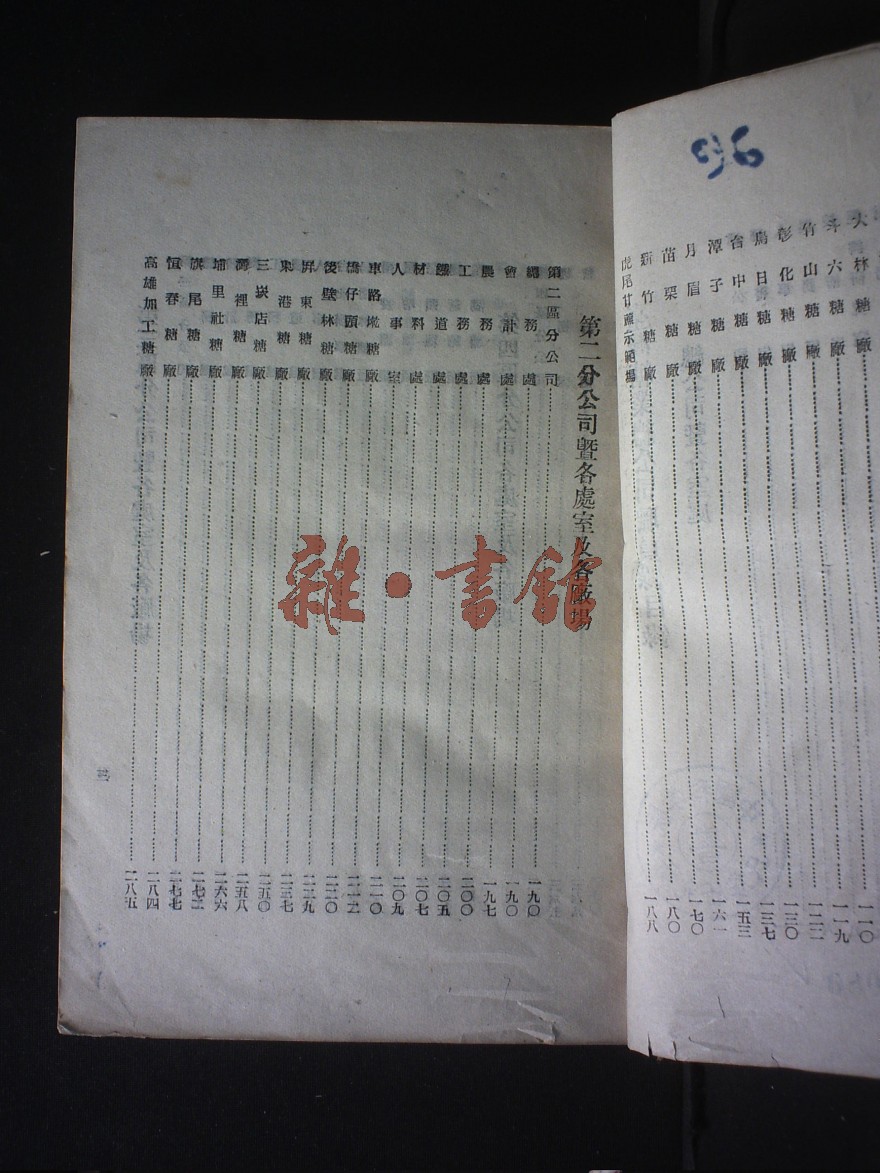 96
大林糖廠 一一〇
斗六糖廠 一一九
竹山糖廠 一二二
彰化糖廠 一三〇
烏日糖廠 一三七
台中糖廠 一五三
潭子糖廠 一六一
月眉糖廠 一七〇
苗栗糖廠 一八〇
新竹糖廠 一八八
虎尾甘蔗示範場
第二分公司暨各處室及各廠場
第二區分公司 一九〇
總務處 一九〇
會計處 一九七
農務處 二〇〇
工務處 二〇五
鐵道處 二〇七
材料處 二〇九
人事室
車路墘糖廠 二一〇
橋仔頭糖廠 二一二
後壁林糖廠 二二〇
屏東糖廠 二二九
東港糖廠 二三七
三崁店糖廠 二五〇
灣裡糖廠 二五八
埔里社糖廠 二六六
旗尾糖廠 二七二
恒春糖廠 二七七
高雄加工糖廠 二八四
二八五
三
雜·書館